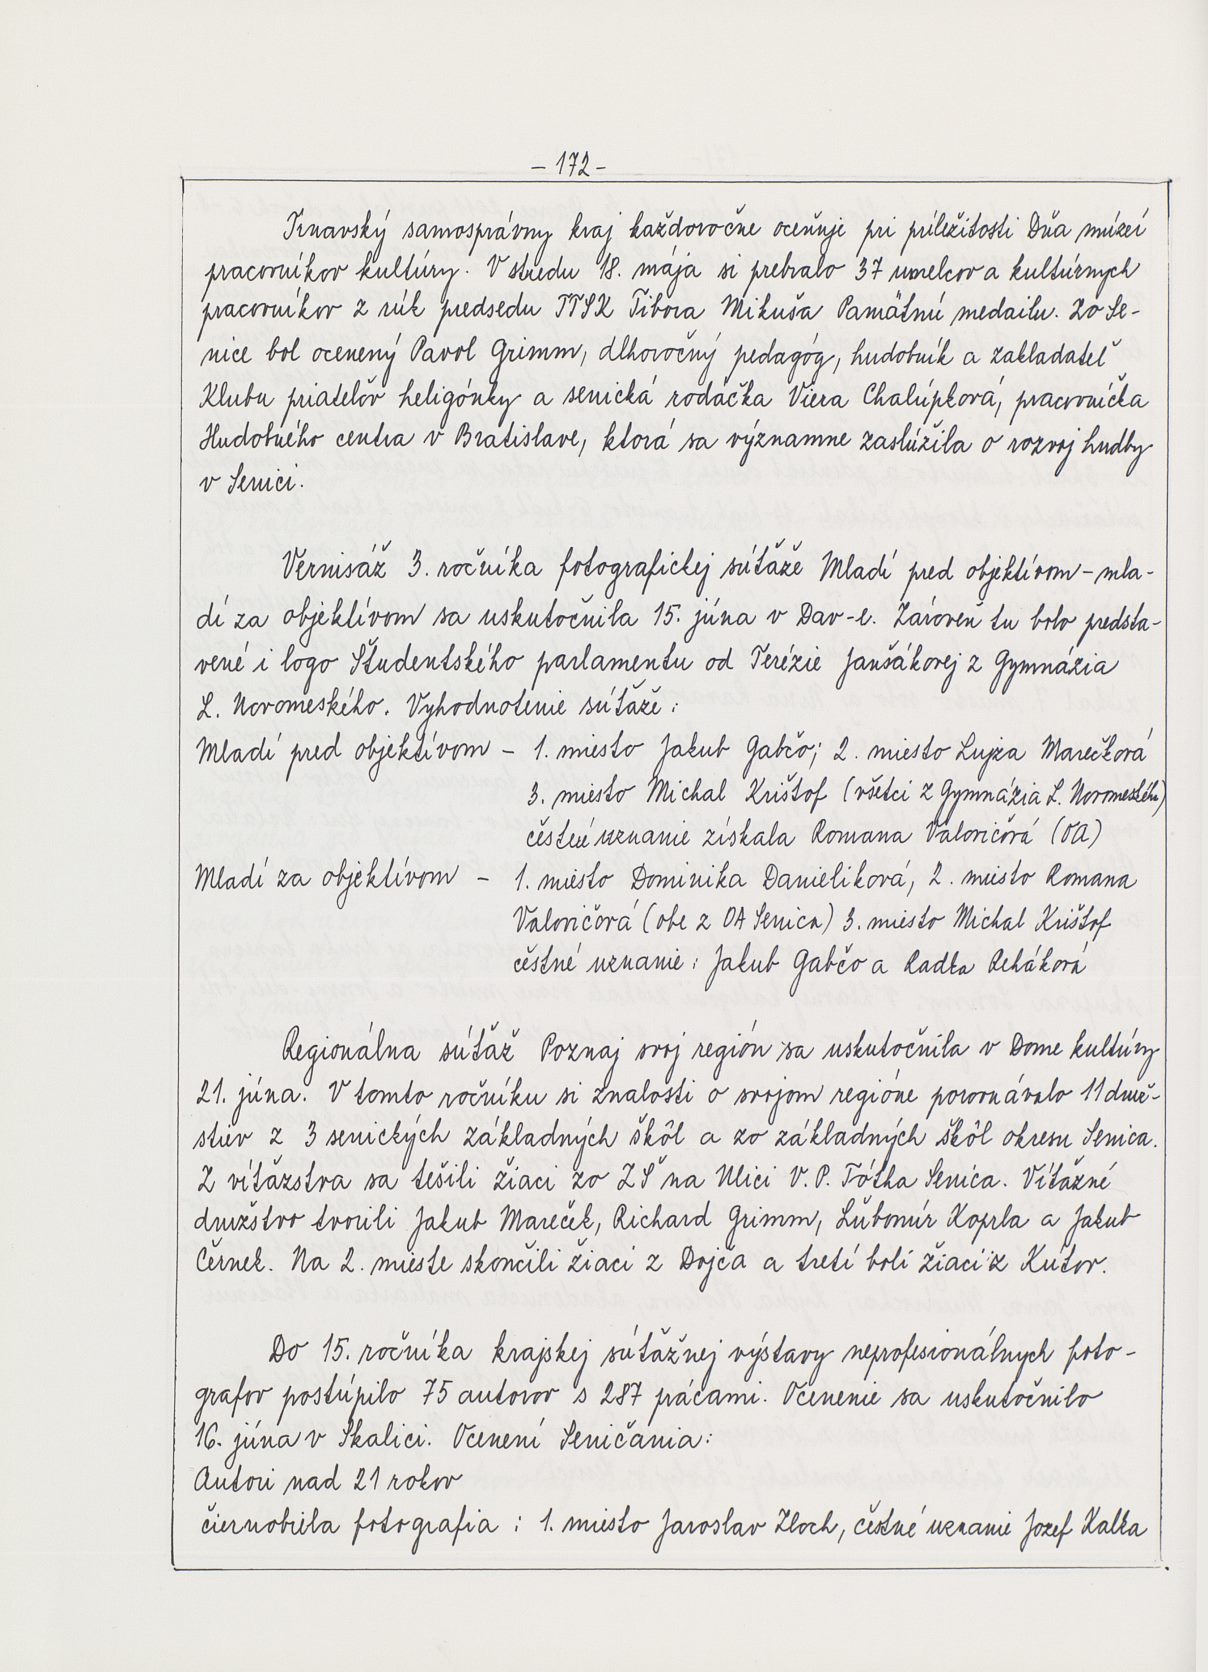 - 172 -
Trnavský samosprávny kraj každoročne oceňuje pri príležitosti Dňa múzeí
pracovníkov kultúry. V stredu 18. mája si prebralo 37 umelcov a kultúrnych
pracovníkov z rúk predsedu TTSK Tibora Mikuša Pamätnú medailu. Zo Se-
nice bol ocenený Pavol Grimm, dlhoročný pedagóg, hudobník a zakladateľ
Klubu priateľov heligónky a senická rodáčka Viera Chalúpková, pracovníčka
Hudobného centra v Bratislave, ktorá sa významne zaslúžila o rozvoj hudby
v Senici.
Vernisáž 3. ročníka fotografickej súťaže Mladí pred objektívom - mla-
dí za objektívom sa uskutočnila 15. júna v Dav-e. Zároveň tu bolo predsta-
vené i logo Študentského parlamentu od Terézie Janšákovej z Gymnázia
L. Novomeského. Vyhodnotenie súťaže:
Mladí pred objektívom - 1. miesto Jakub Gabčo; 2. miesto Lujza Marečková
3. miesto Michal Krištof (všetci z Gymnázia L. Novomeského)
čestné uznanie získala Romana Valovičová (OA)
Mladí za objektívom - 1. miesto Dominika Danielíková, 2. miesto Romana
Valovičová (obe z OA Senica) 3. miesto Michal Krištof
čestné uznanie: Jakub Gabčo a Radka Reháková
Regionálna súťaž Poznaj svoj región sa uskutočnila v Dome kultúry
21. júna. V tomto ročníku si znalosti o svojom regióne porovnávalo 11 druž-
stiev z 3 senických základných škôl a zo základných škôl okresu Senica.
Z víťazstva sa tešili žiaci zo ZŠ na Ulici V. P. Tótha Senica. Víťazné
družstvo tvorili Jakub Mareček, Richard Grimm, Ľubomír Koprla a Jakub
Černek. Na 2. mieste skončili žiaci z Dojča a tretí boli žiaci z Kútov.
Do 15. ročníka krajskej súťažnej výstavy neprofesionálnych foto-
grafov postúpilo 75 autorov s 287 prácami. Ocenenie sa uskutočnilo
16. júna v Skalici. Ocenení Seničania:
Autori nad 21 rokov
čiernobiela fotografia : 1. miesto Jaroslav Zloch, čestné uznanie Jozef Kalka